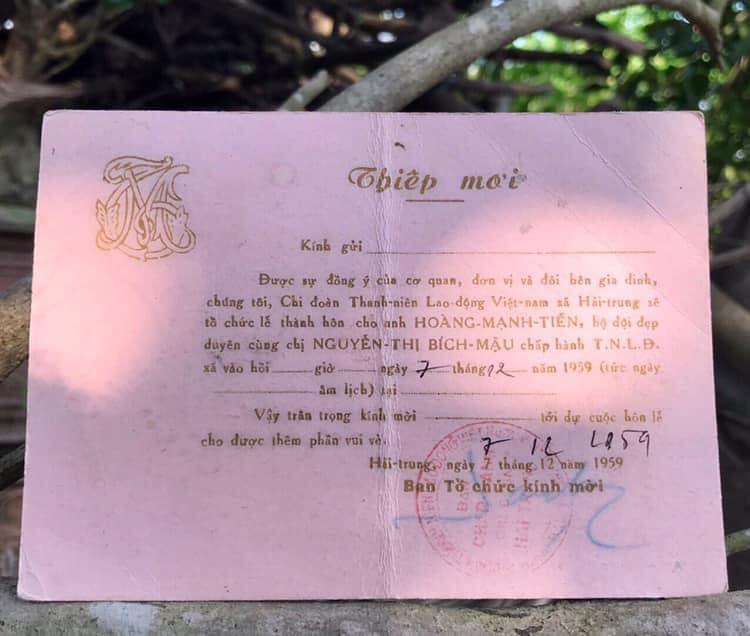 Thiếp mời
Kính gửi
Được sự đồng ý của cơ quan, đơn vị và đôi bên gia đình,
chúng tôi, Chi đoàn Thanh-niên Lao-động Việt-nam xã Hải-trung sẽ
tổ chức lễ thành hôn cho anh HOÀNG-MẠNH-TIẾN, bộ đội đẹp
duyên cùng chị NGUYỄN-THỊ BÍCH-MẬU chấp hành T.N.L.Đ.
xã vào hồi giờ ngày 7 tháng 12 năm 1959 (tức ngày
âm lịch) tại
Vậy trân trọng kính mời tới dự cuộc hôn lễ
cho được thêm phần vui vẻ.
7 12 1959
Hải-trung, ngày 7 tháng 12 năm 1959
Ban Tổ chức kính mời